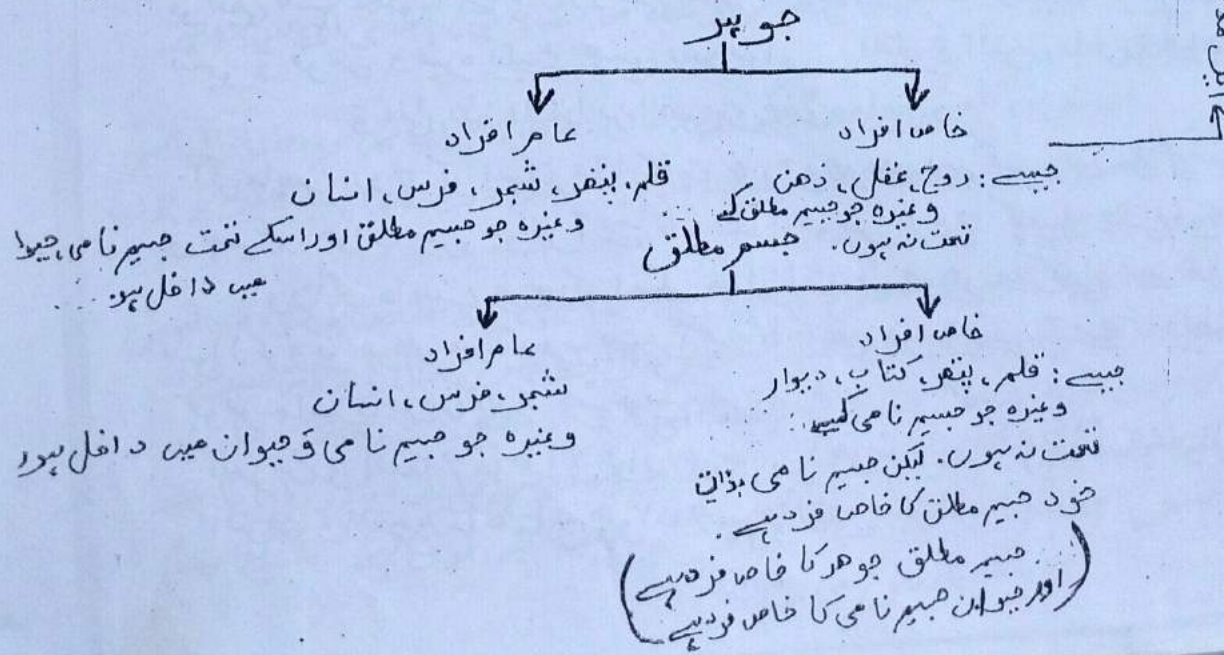 جوہر
خاص افراد
عام افراد
جیسے: روح، عقل، ذھن
وغیرہ جو جسم مطلق کے
تحت نہ ہوں.
قلم، پتھر، شجر، فرس، انسان
وغیرہ جو جسم مطلق اور اسکے تحت جسم نامی، حیوا
میں داخل ہو
جسم مطلق
خاص افراد
عام افراد
جیسے: قلم، پتھر، کتاب، دیوار
وغیرہ جو جسم نامی کے
تحت نہ ہوں. لیکن جسم نامی بذات
خود جسم مطلق کا خاص فرد ہے.
(جسم مطلق جوھر کا خاص فرد ہے
اور حیوان جسم نامی کا خاص فرد ہے)
شجر، فرس، انسان
وغیرہ جو جسم نامی و حیوان میں داخل ہوں